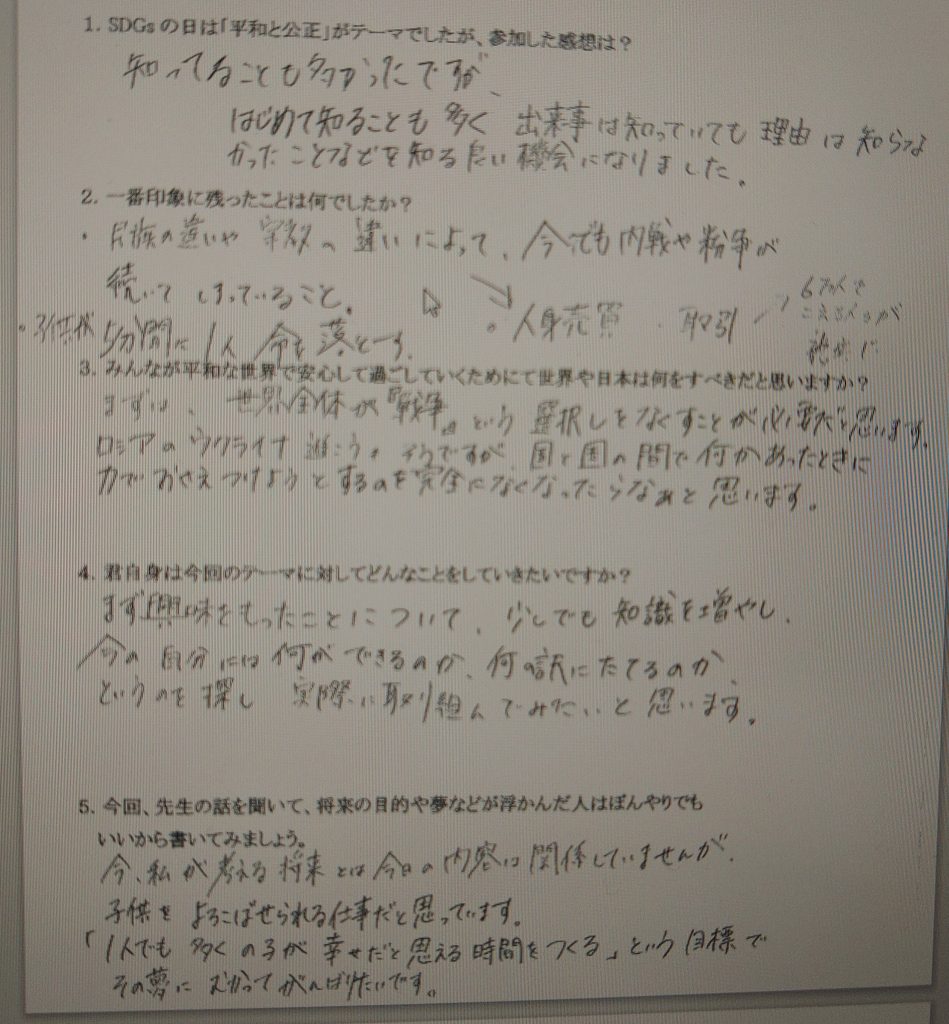 1. SDGs の日は「平和と公正」がテーマでしたが、参加した感想は？
知ってることも多かったですが、
はじめて知ることも多く 出来事は知っていても 理由は知らな
かったことなどを知る良い機会になりました。
2. 一番印象に残ったことは何でしたか？
・民族の違いや 宗教の 違いによって、今でも内戦や紛争が
続いてしまっていること。
・人身売買・取引
6万人で
・子供が 5分間に 1人 命を落とす。
3. みんなが平和な世界で安心して過ごしていくためにて世界や日本は何をすべきだと思いますか？
まずは、世界全体が『戦争』という選択しをなくすことが必要だと思います。
ロシアのウクライナ そうですが、国と国の間で何かあったときに
力でおさえつけようとするのを完全になくなったらなぁと思います。
4. 君自身は今回のテーマに対してどんなことをしていきたいですか？
まず興味をもったことについて、少しでも知識を増やし、
今の自分には何ができるのか、何の訳にたてるのか
というのを探し 実際に取り組んでみたいと思います。
5. 今回、先生の話を聞いて、将来の目的や夢などが浮かんだ人はぼんやりでも
いいから書いてみましょう。
今、私が考える将来とは今日の内容は関係していませんが、
子供をよろこばせられる仕事だと思っています。
「1人でも多くの子が幸せだと思える時間をつくる」という目標で
その夢にむかってがんばりたいです。